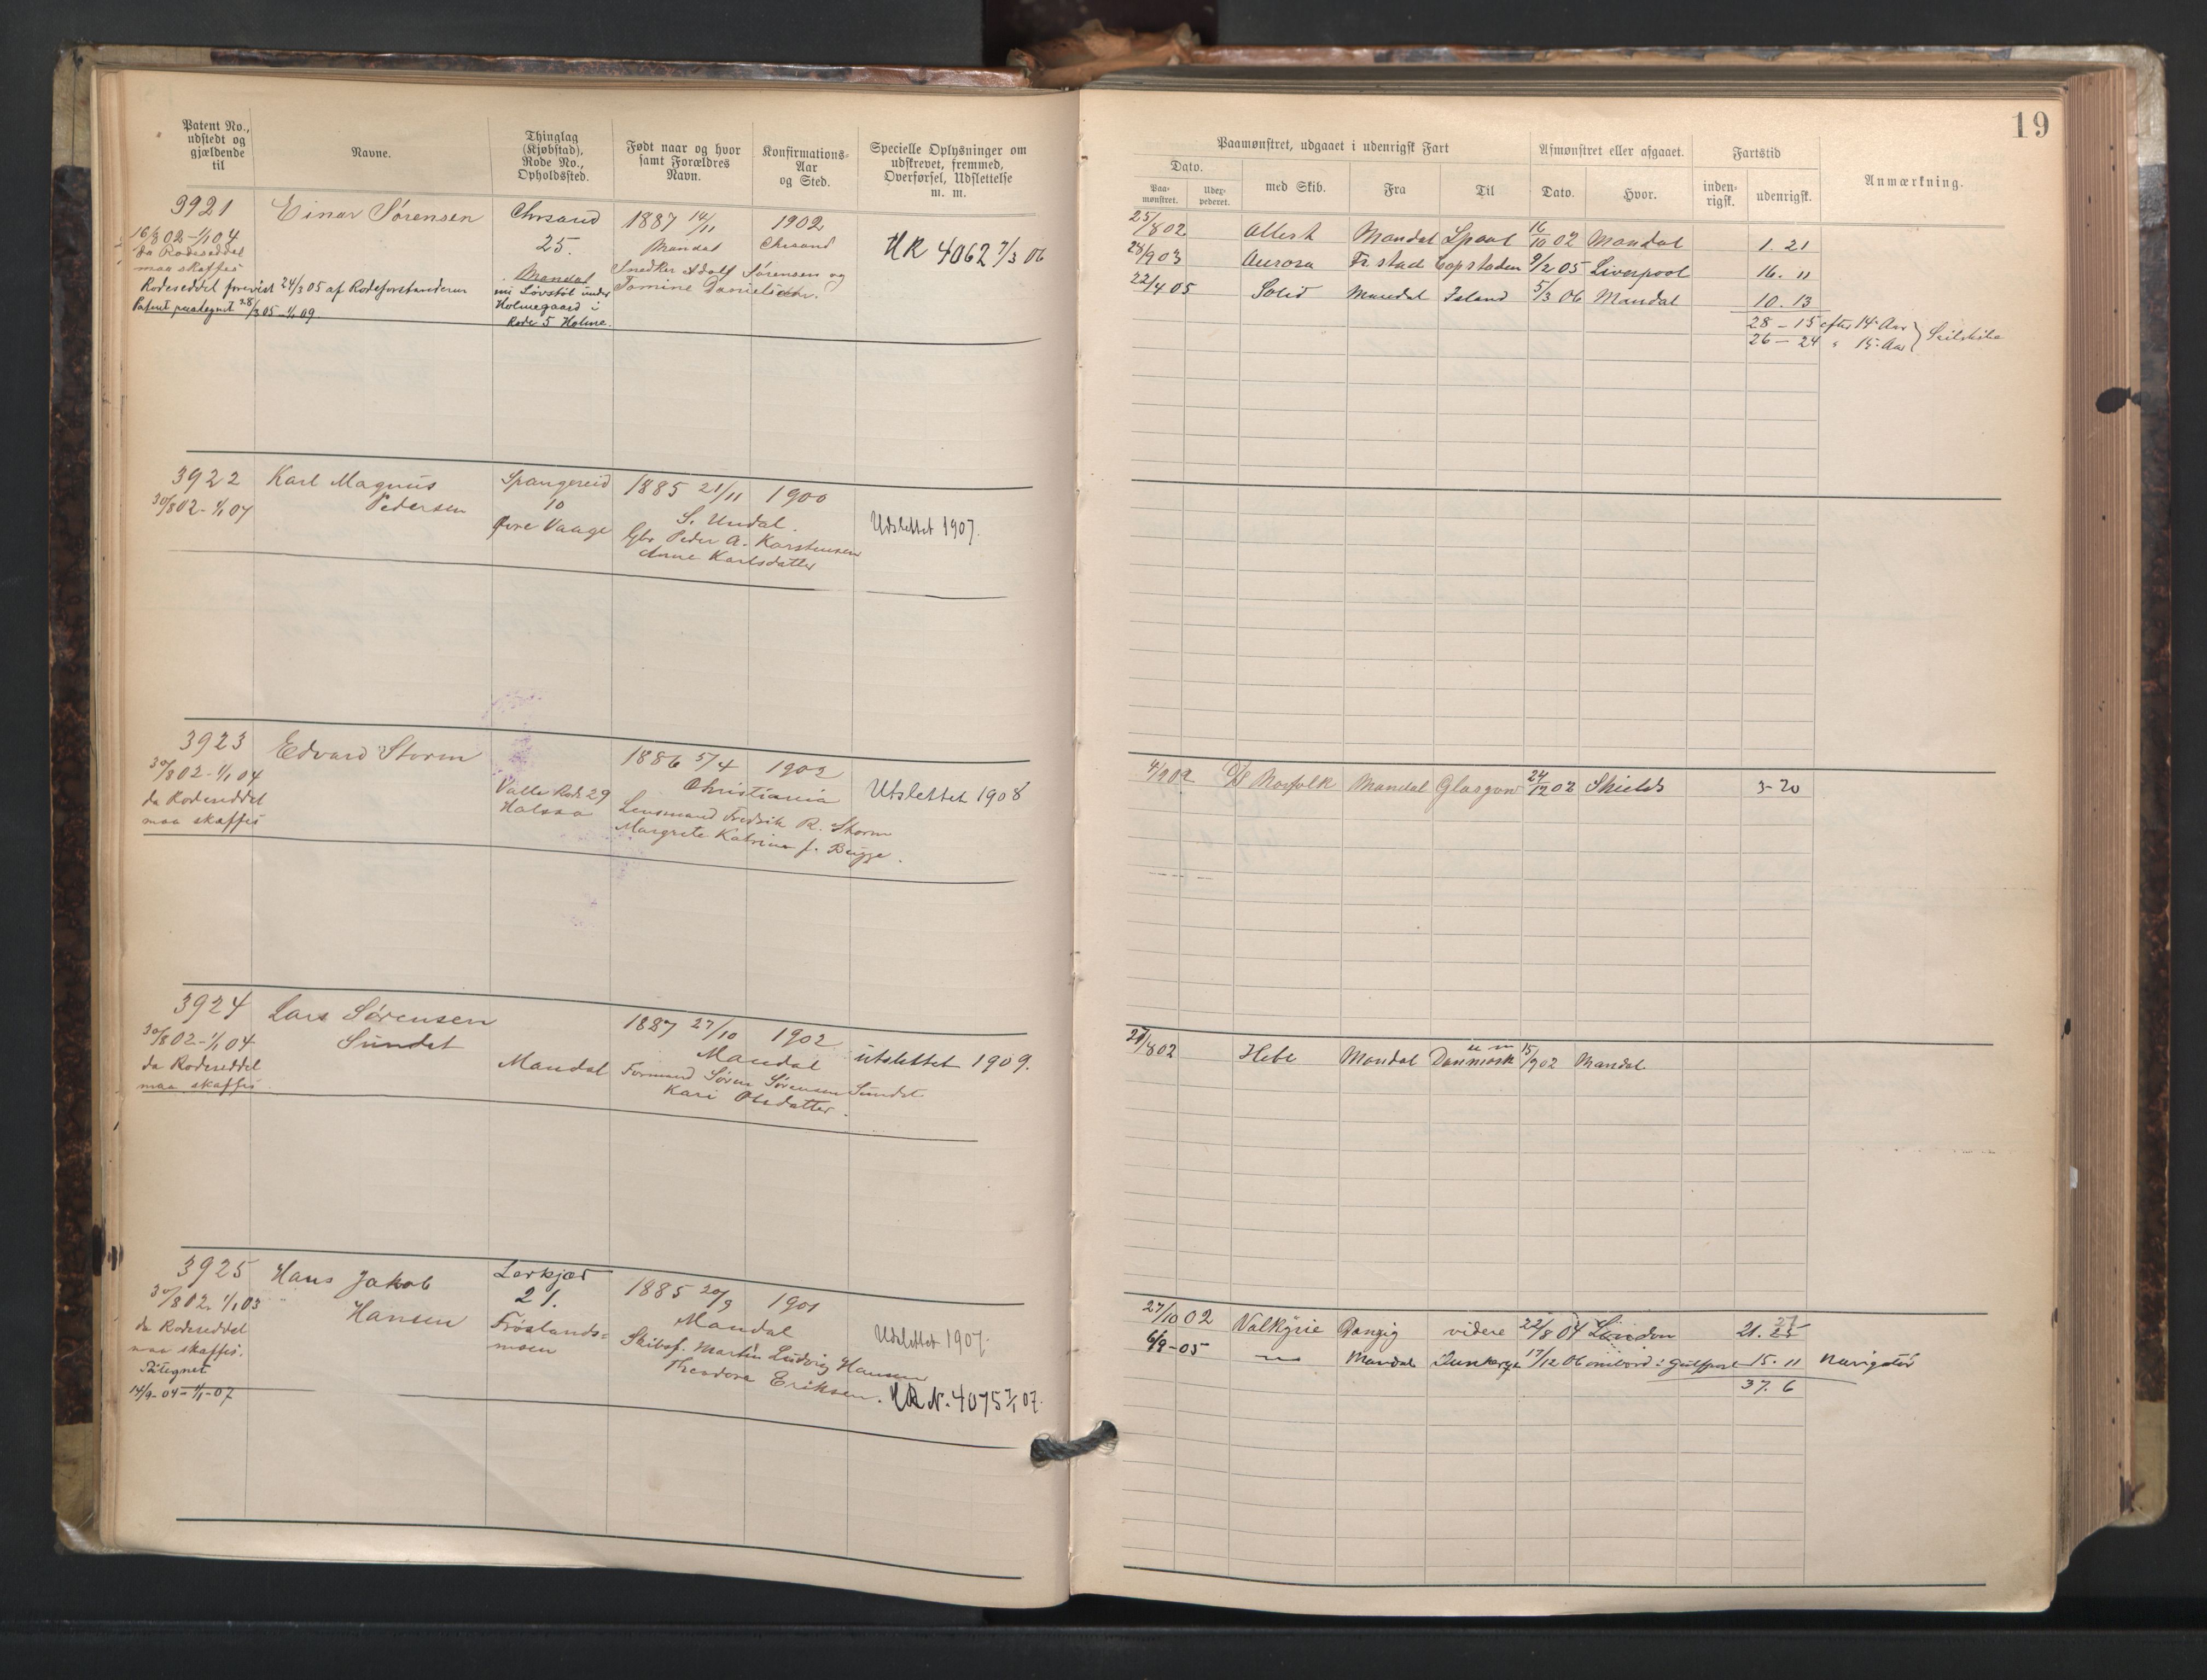 19
Patent No.,
udstedt og
gjældende
til
Navne.
Thinglag
(Kjøbstad),
Rode No.,
Opholdssted.
Født naar og hvor
samt Forældres
Navn.
Konfirmations-
Aar
og Sted.
Specielle Oplysninger om
udskrevet, fremmed,
Overførsel, Udslettelse
m. m.
Paamønstret, udgaaet i udenrigsk Fart
Dato.
Paa-
mønstret.
Uder-
pederet.
med Skib.
Fra
Til
Afmønstret eller afgaaet.
Dato.
Hvor.
Fartstid
inden-
rigsk.
udenrigsk.
Anmærkning.
3921
16/8 02 - 1/1 04
da Rodeseddel
maa skaffes
Rodeseddel forevist 24/3 05 af Rodeforstanderen
Patent paategnet 28/3 05 - 1/1 09.
Einar Sørensen
Chrsand
25.
Mandal
nu Løvstöl under
Holmegaard i
Rode 5 Holme.
1887 14/11
Mandal
Snedker Adolf Sørensen og
Tomine Danielsdtr.
1902
Chrsand
HR 4062 7/3 06
25/8 02 Allert Mandal 16/10 02 Mandal 1. 21
28/9 03 Aurora Fr.stad Capstaden 9/2 05 Liverpool 16. 11
22/4 05 Solid Mandal Island 5/3 06 Mandal 10. 13
28 - 15 efter 14 Aar
26 - 24 " 15 Aar
3922
30/8 02 - 1/1 04
Karl Magnus
Pedersen
Spangereid
10
Øvre Vaage
1885 21/11 1900
S. Undal.
Gbr. Peder A. Karstensen
Anne Karlsdatter
Udslettet 1907.
3923
30/8 02 - 1/1 04
da Rodeseddel
maa skaffes
Edvard Storm
Valle Rode 29
Halsaa
1886 5/4 1902
Christiania
Lensmand Fredrik R. Storm
Margrete Katrine f. Bugge.
Utslettet 1908
4/9 02 D/S Norfolk Mandal Glasgow 24/12 02 Shields 3-20
3924
30/8 02 - 1/1 04
da Rodeseddel
maa skaffes
Lars Sørensen
Sundet
Mandal
1887 27/10 1902
Mandal
Formand Søren Sørensen Sundet
Kari Olsdatter.
utslettet 1909.
27/8 02 Hebe Mandal Danmark 15/9 02 Mandal
3925
30/8 02. 1/1 03
da Rodeseddel
maa skaffes.
Påtegnet
14/9-04 - 1/1-07
Hans Jakob
Hansen
Lerkjær
21.
Frøslands-
moen
1885 20/9 1901
Mandal
Skibsf. Martin Ludvig Hansen
Theodora Eriksen.
Udslettet 1907.
HR N. 4075 7/1 07.
27/10 02 Valkyrie Danzig videre 22/8 04 London 21. 25
6/9-05 Mandal Dunkerque 17/12 06 ombord i Gulfport 15. 11 Navigatör
37. 6